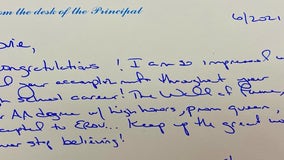 om the desk of the Principal
6/2021
ovie,
ongratulations! I am so impressed w
your accomplishments throughout your
school career! The Wall of Fame,
r AA degree w/ high honors, prom queen,
accepted to ERAU... Keep up the great wo
ver stop believing!